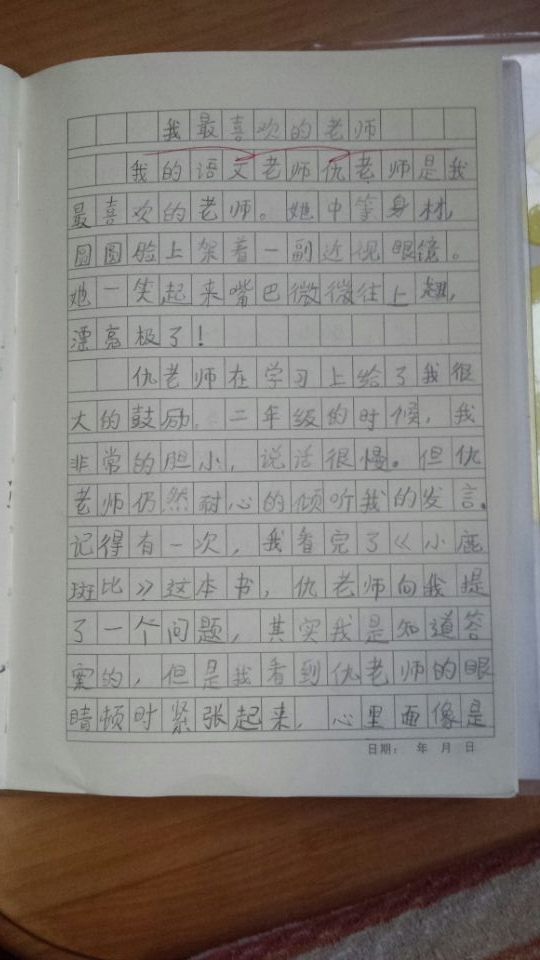 我最喜欢的老师
我的语文老师仇老师是我
最喜欢的老师。她中等身材,
圆圆脸上架着一副近视眼镜。
她一笑起来嘴巴微微往上翘,
漂亮极了!
仇老师在学习上给了我很
大的鼓励。二年级的时候,我
非常的胆小,说话很慢。但仇
老师仍然耐心的倾听我的发言。
记得有一次,我看完了《小鹿
斑比》这本书,仇老师向我提
了一个问题,其实我是知道答
案的,但是我看到仇老师的眼
睛顿时紧张起来,心里面像是
日期: 年 月 日